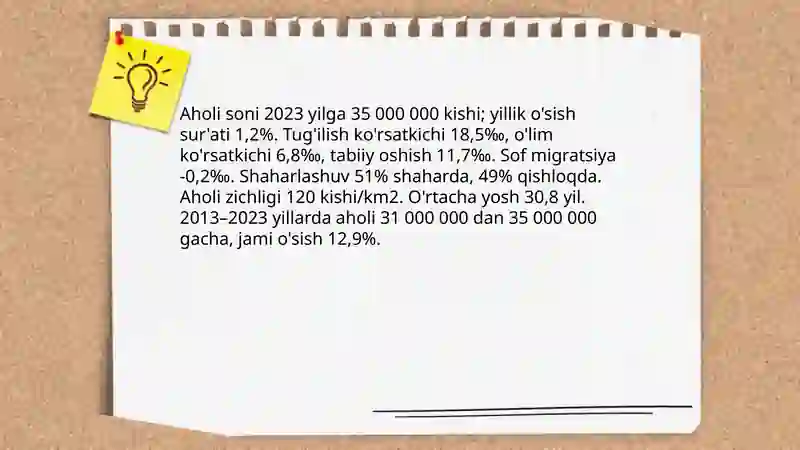 Aholi soni 2023 yilga 35 000 000 kishi; yillik o'sish
sur'ati 1,2%. Tug'ilish ko'rsatkichi 18,5‰, o'lim
ko'rsatkichi 6,8‰, tabiiy oshish 11,7‰. Sof migratsiya
-0,2‰. Shaharlashuv 51% shaharda, 49% qishloqda.
Aholi zichligi 120 kishi/km2. O'rtacha yosh 30,8 yil.
2013–2023 yillarda aholi 31 000 000 dan 35 000 000
gacha, jami o'sish 12,9%.